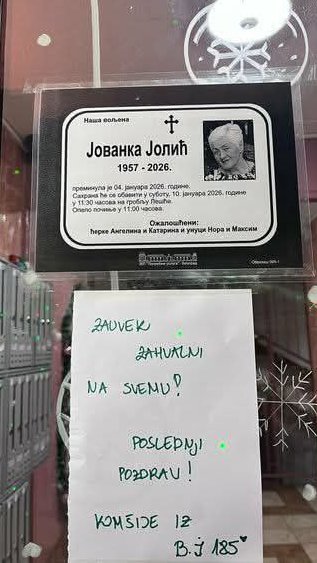 Наша вољена
Јованка Јолић
1957 - 2026.
преминула је 04. јануара 2026. године.
Сахрана ће се обавити у суботу, 10. јануара 2026. године
у 11:30 часова на гробљу Лешће.
Опело почиње у 11:00 часова.
Ожалошћени:
ћерке Ангелина и Катарина и унуци Нора и Максим
ZAUVEK
ZAHVALNI
NA SVEMU!
POSLEDNJI
POZDRAV!
KOMŠIJE IZ
B.J 185